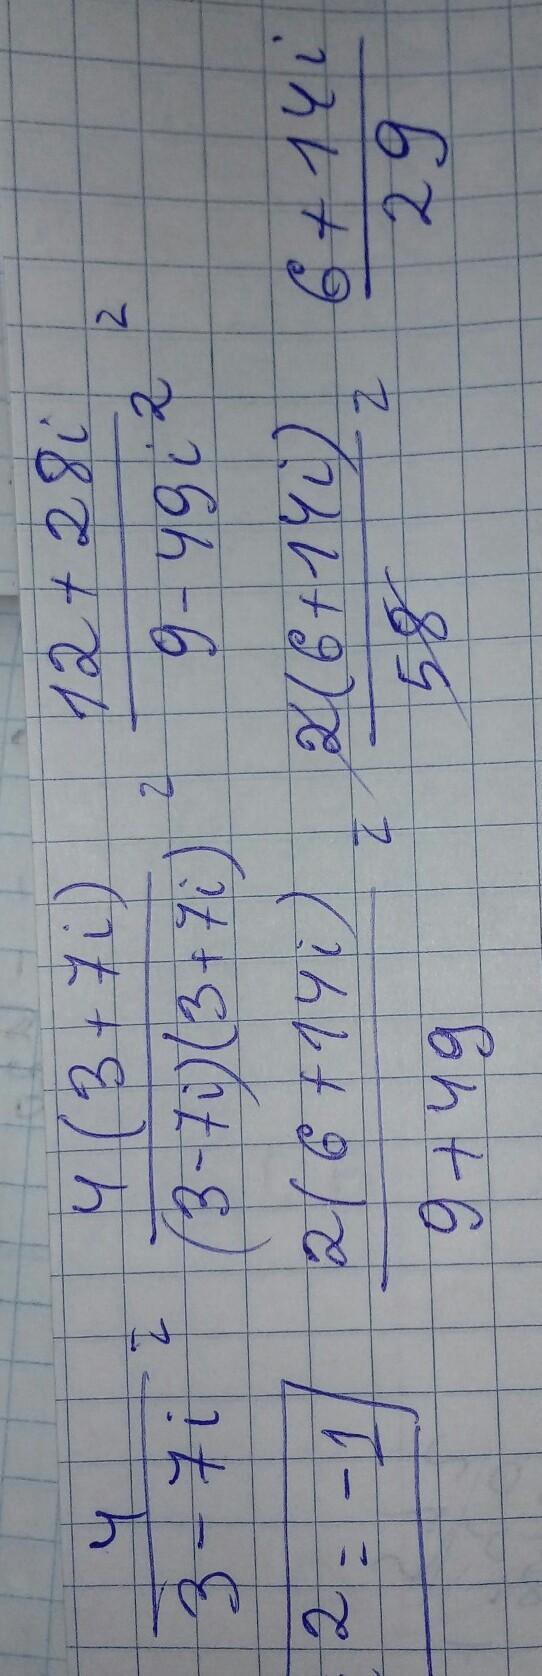 4/(3 - 7i) = 4(3 + 7i)/((3 - 7i)(3 + 7i)) = (12 + 28i)/(9 - 49i²) =
² = -1 2(6 + 14i)/(9 + 49) = 2(6 + 14i)/58 = (6 + 14i)/29